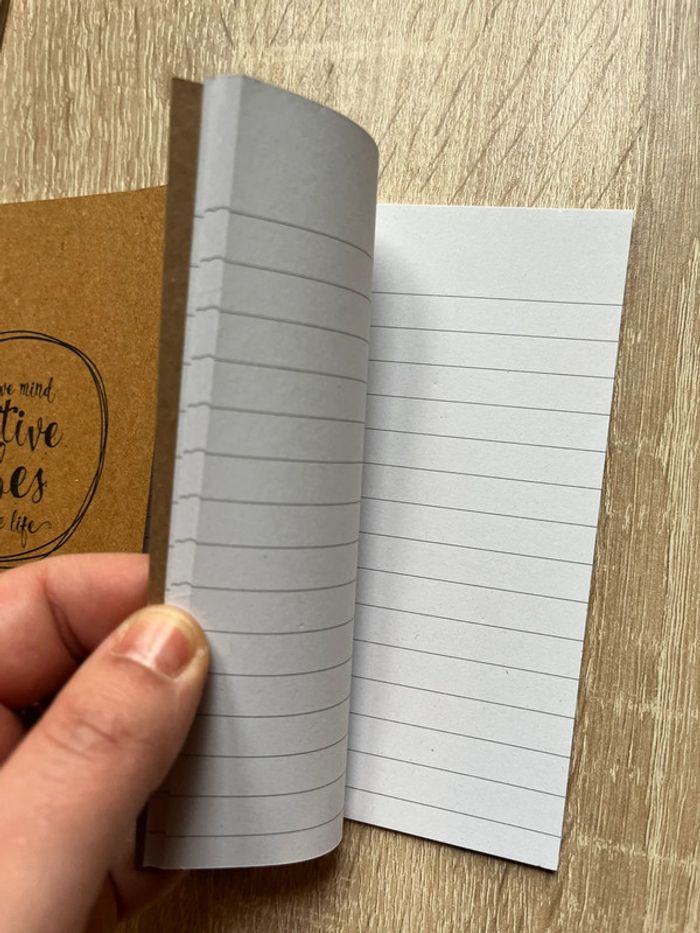 ve mind
tive
bes
e life